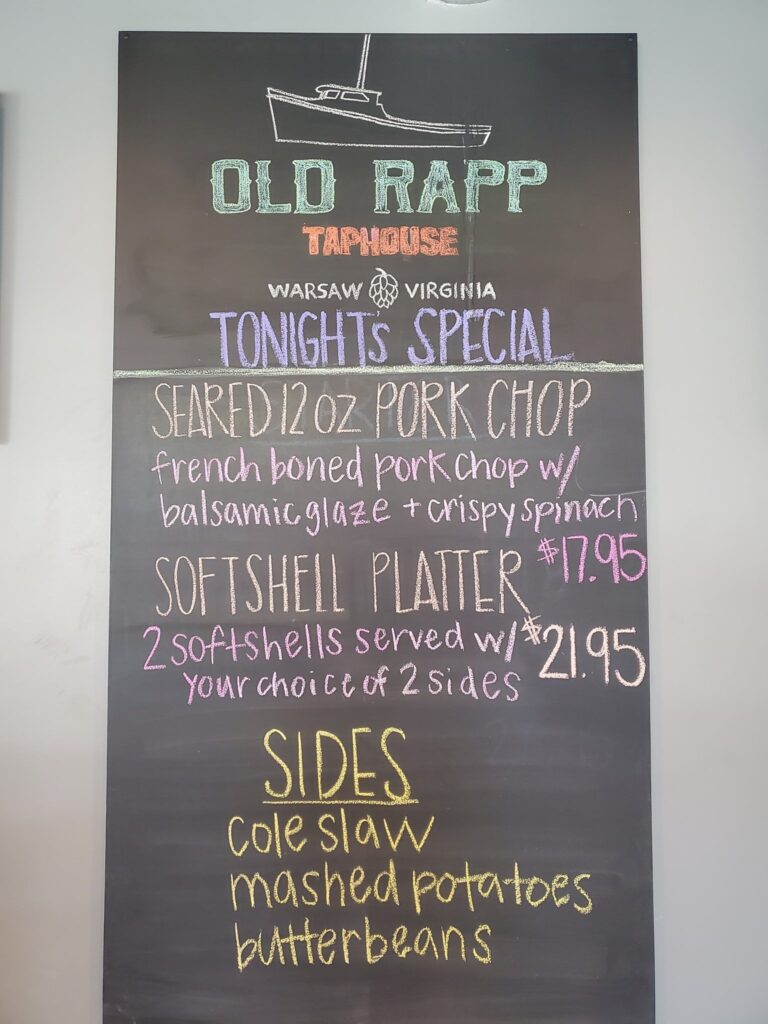 OLD RAPP
TAPHOUSE
WARSAW VIRGINIA
TONIGHT's SPECIAL
SEARED 12 oz PORK CHOP
french boned pork chop w/
balsamic glaze + crispy spinach
$17.95
SOFTSHELL PLATTER
2 softshells served w/
$21.95
your choice of 2 sides
SIDES
cole slaw
mashed potatoes
butterbeans